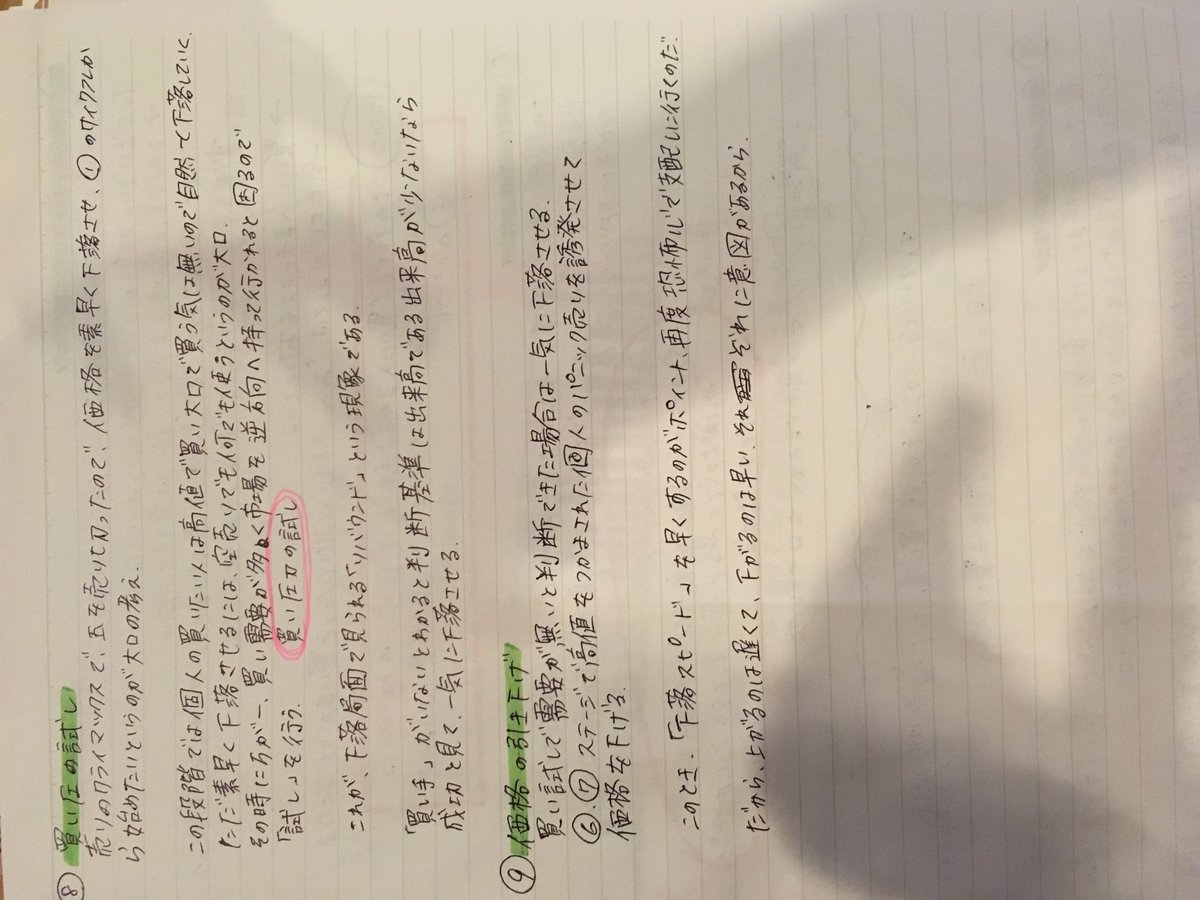 ⑧ 買い圧の試し
売りのクライマックスで、玉を売り切ったので、価格を素早く下落させ、①のサイクルか
ら始めたいというのが大口の考え.
この段階では個人の買いたい人は高値で買い大口で買う気は無いので自然と下落していく.
ただ素早く下落させるには、空売りでも何でも使うというのが大口.
その時に万が一、買い需要が多く市場を逆方向へ持って行かれると困るので
「試し」を行う. 買い圧力の試し
これが、下落局面で見られる「リバウンド」という現象である.
「買い手」がいないとわかると判断基準は出来高である出来高が少ないなら
成功と見て、一気に下落させる.
⑨ 価格の引き下げ
買い試しで需要が無いと判断できた場合は一気に下落させる.
⑥.⑦ステージで高値をつかまされた個人のパニック売りを誘発させて
価格を下げる.
このとき、「下落スピード」を早くするのがポイント、再度恐怖心で支配しに行くのだ.
だから、上がるのは遅くて、下がるのは早い. それぞれに意図があるから.